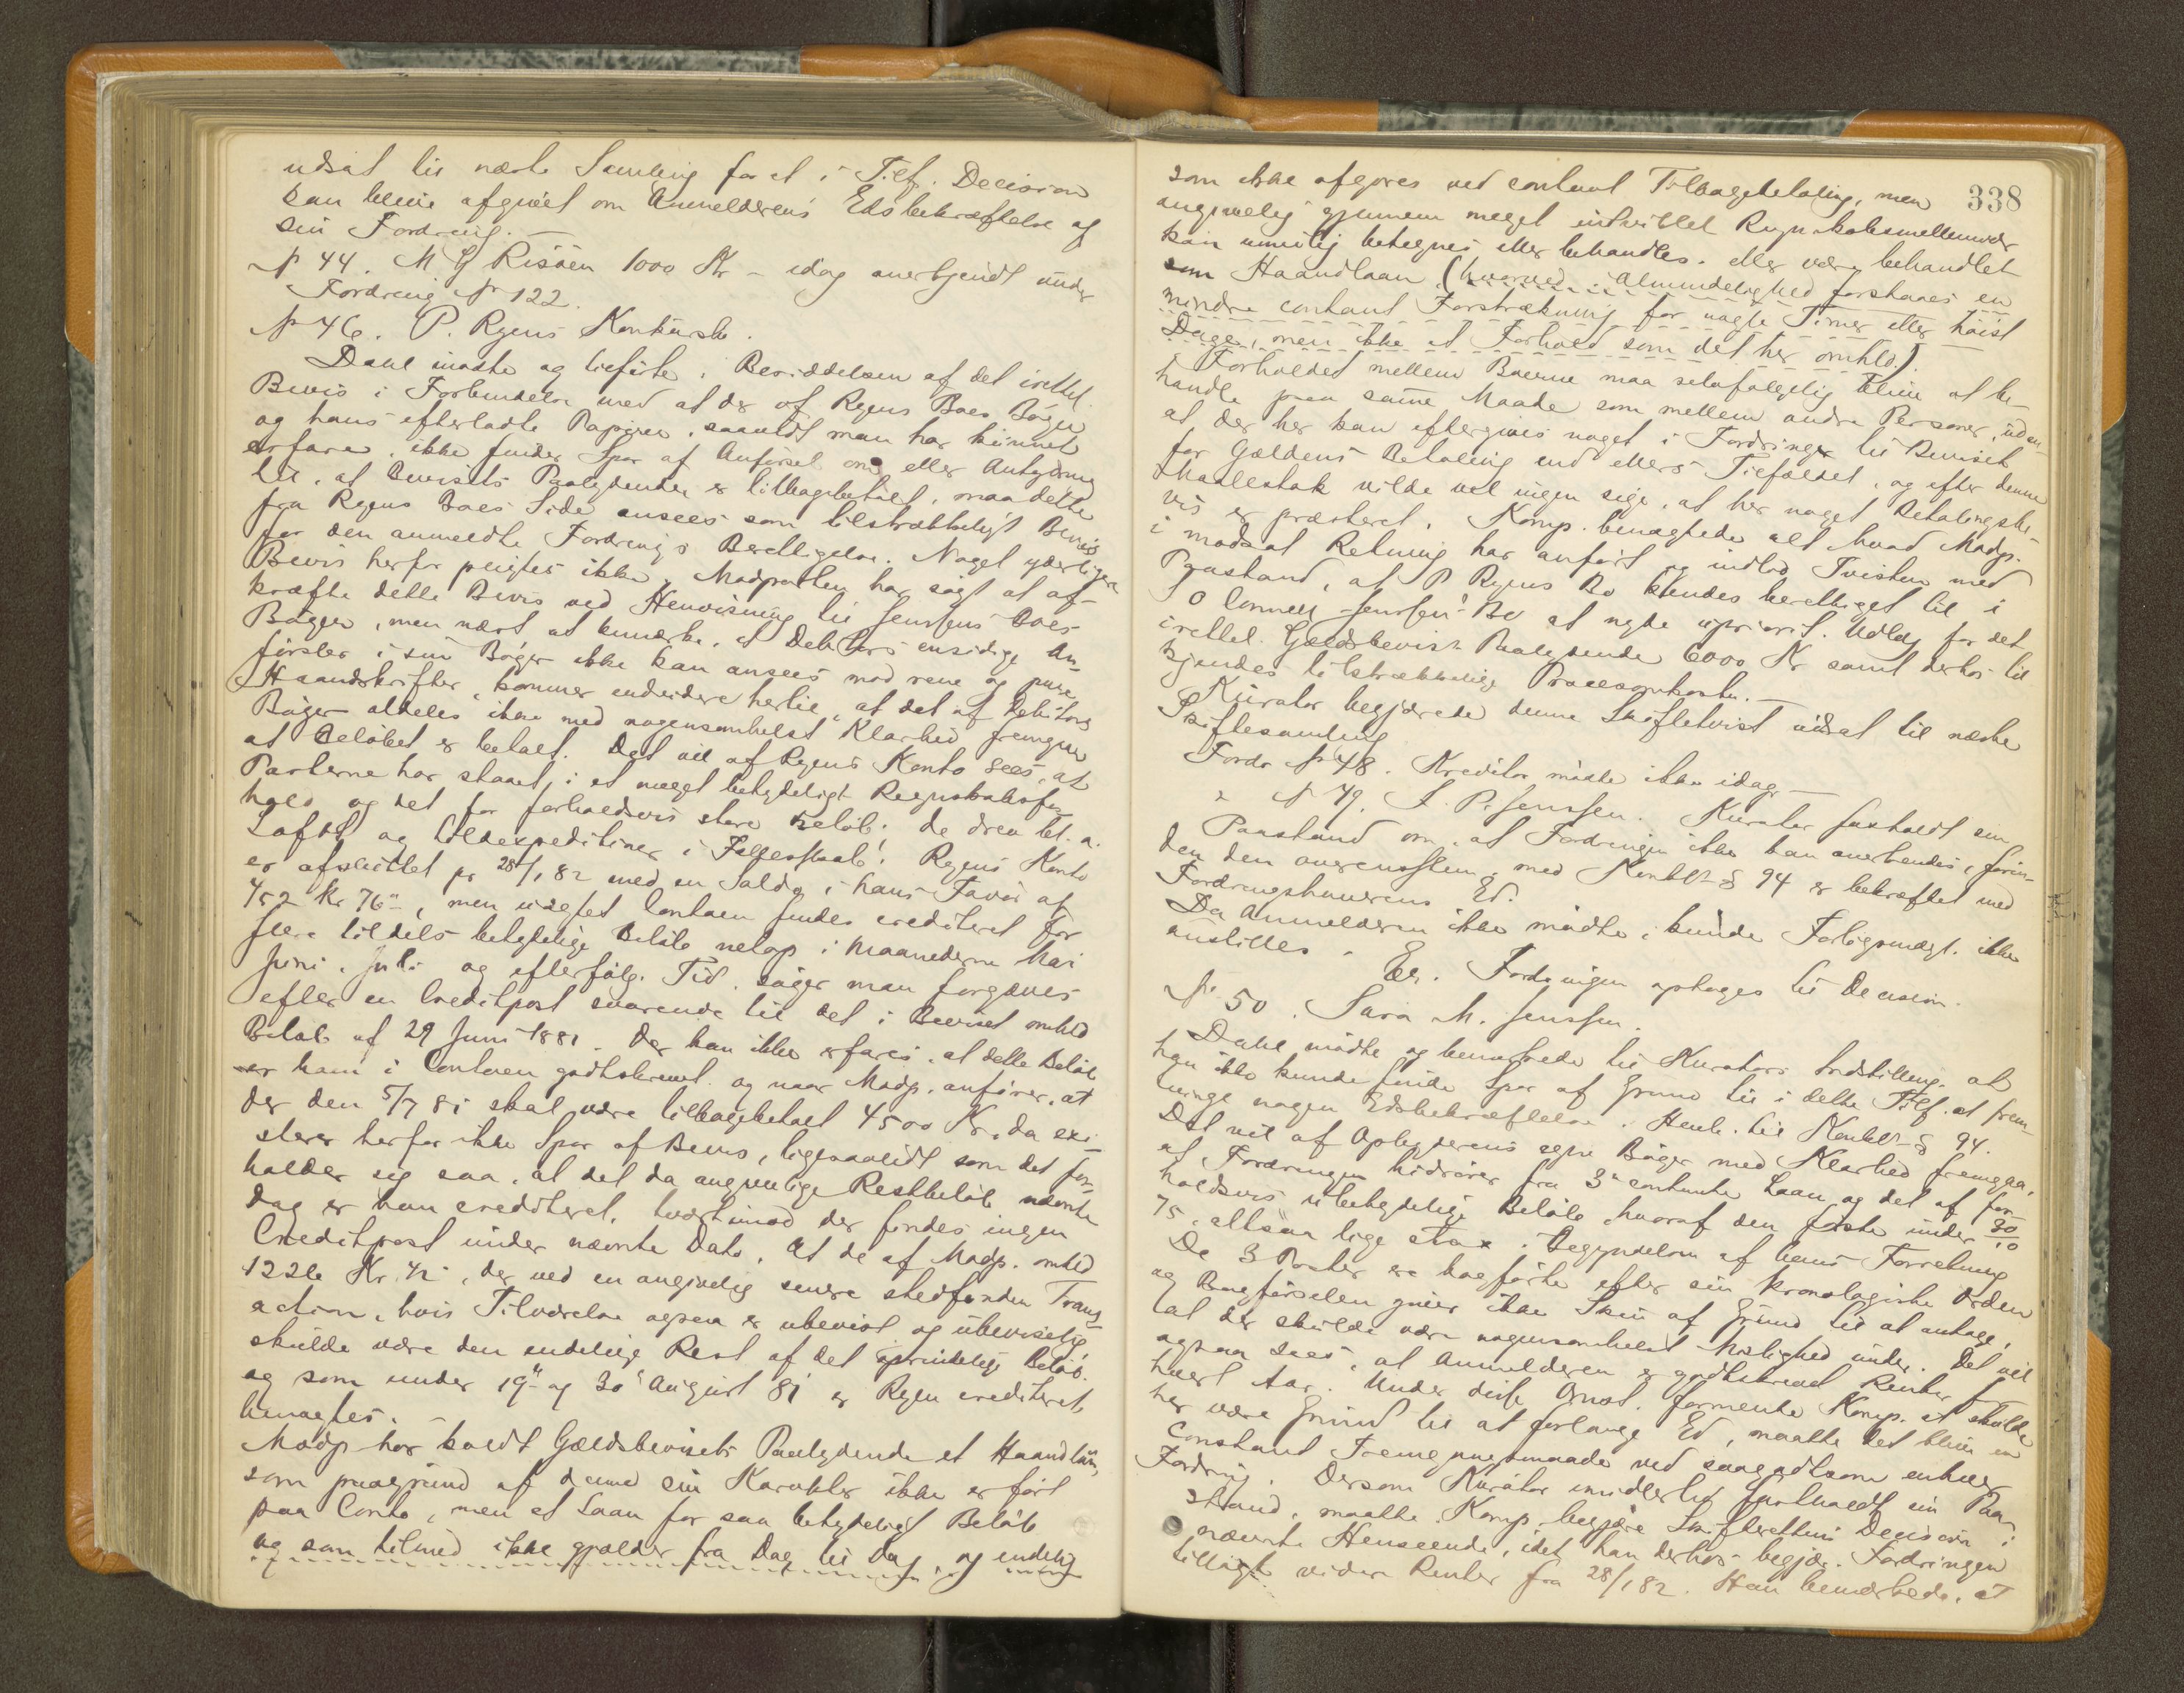 udsat til næste Samling for at i Tilf. Decision
kan blive afgivet om Anmelderens Edsbekræftelse af
sin Fordring.
№ 44. M G Risøen 1000 Kr - idag anerkjendt under
Fordring № 122.
№ 46. P. Ryens Konkursbo.
Dahl mødte og tilførte. Besiddelsen af det irettel.
Bevis i Forbindelse med at der af Ryens Boes Bøger
og hans efterladte Papirer, saavidt man har kunnet
erfare, ikke findes Spor af Anførsel om eller Antydning
til, at Bevisets Paalydende er tilbagebetalt, maa dette
fra Ryens Boes Side ansees som tilstrækkeligt Bevis
for den anmeldte Fordrings Berettigelse. Noget yderligere
Bevis herfor pligtes ikke. Modparten har søgt at af-
kræfte dette Bevis ved Henvisning til Jenssens Boes
Bøger, men nært at bemærke, at Debitors ensidige An-
førsler i sine Bøger ikke kan ansees mod rene og pure
Haandskrifter, kommer endvidere hertil, at det af Debitors
Bøger aldeles ikke med nogensomhelst Klarhed fremgaar
at Beløbet er betalt. Det vil af Ryens Konto sees, at
Parterne har staaet i et meget betydeligt Regnskabsfor-
hold og det for forholdsvis store Beløb. De drev bl. a.
Lofot og Sildexpeditioner i Fællesskab. Ryens Konto
er afsluttet pr 28/1 82 med en Saldo i hans Favør af
452 Kr 76", men uagtet Contoen findes crediteret for
flere tildels betydelige Beløb netop i Maanederne Mai
Juni, Juli og efterfølg. Tid, søger man forgjæves
efter en Creditpost svarende til det i Beviset omhld
Beløb af 29 Juni 1881. Der kan ikke erfares, at dette Beløb
er ham i Contoen godtskrevet og naar Modp. anfører, at
der den 5/7 81 skal være tilbagebetalt 4500 Kr, da exi-
sterer herfor ikke Spor af Bevis, ligesaalidt som det for-
holder sig saa, at det da angivelige Restbeløb nævnte
Dag er ham crediteret, tvertimod der findes ingen
Creditpost under nævnte Dato. At de af Modp. omhld
1226 Kr. 42, der ved en angivelig senere stedfunden Trans-
action, hvis Tilværelse ogsaa er ubevist og ubeviselig,
skulde være den endelige Rest af det oprindelige Beløb
og som under 19" og 30" August 81 er Ryen crediteret,
benægtes.
Modp. har kaldt Gjældsbevisets Paalydende et Haandlån,
som paagrund af denne sin Karakter ikke er ført
paa Conto, men et Laan for saa betydeligt Beløb
og som tilmed ikke gjælder fra Dag til Dag, og endelig
338
som ikke afgøres ved contant Tilbagebetaling, men
angivelig gjennem meget indviklet Regnskabsmellemvær
kan umulig betegnes eller behandles, eller være behandlet
som Haandlaan (hvorved i Almindelighed forstaaes en
mindre contant Forstrækning for nogle Timer eller høist
Dage, men ikke et Forhold som det her omhld).
Forholdet mellem Boerne maa selvfølgelig blive at be-
handle paa samme Maade som mellem andre Personer, uden
at der her kan eftergives noget i Fordringer til Beviset
for Gjældens Betaling end ellers Tilfældet, og efter denne
Maalestok vilde vel ingen sige, at her noget Betalingsbe-
vis er præsteret. Komp. benægtede alt hvad Modp.
i modsat Retning har anført og indlod Tvisten med
Paastand, at P Ryens Bo kjendes berettiget til i
O Connelly Jenssens Bo at nyde upriorit. Udlæg for det
irettel. Gjældsbevis's Paalydende 6000 Kr samt derhos til
kjendes tilstrækkelig Procesomkostn.
Kurator begjærede denne Skiftetvist udsat til næste
Skiftesamling
Fordr № 48. Kreditor mødte ikke idag
" № 49. L. P. Jenssen. Kurator fastholdt sin
Paastand om, at Fordringen ikke kan anerkendes, forin-
den den overensstem. med Konkl. § 94 er bekræftet med
Fordringshaverens Ed.
Da Anmelderen ikke mødte, kunde Forligsmægl. ikke
anstilles.
Eer. Fordringen optages til Decision.
№ 50. Sara M. Jenssen.
Dahl mødte og bemærkede til Kurators Indstilling, at
han ikke kunde finde Spor af Grund til i dette Tilf. at frem-
tvinge nogen Edsbekræftelse. Henh. til Konkl. § 94.
Det vil af Opbyderens egne Bøger med Klarhed fremgaa,
at Fordringen hidrører fra 3" contante Laan og det af for-
holdsvis ubetydelige Beløb, hvoraf den første under 30/10
75, altsaa lige strax i Begyndelsen af hans Forretning
De 3 Poster er bogførte efter sin kronologiske Orden
og Bogførselen giver ikke Skin af Grund til at antage,
at der skulde være nogensomhelst Mislighed under. Det vil
ogsaa sees, at Anmelderen er godtskrevet Renter for
hvert Aar. Under disse Omst. formente Komp. at skulde
her være Grund til at forlange Ed, maatte det blive en
constant Fremgangsmaade ved saagodtsom enhver
Fordring. Dersom Kurator imidlertid fastholdt sin Paa-
stand, maatte Komp. begjære Skifterettens Decision i
nævnte Henseende, idet han derhos begjær. Fordringen
tillagt videre Renter fra 28/1 82. Han bemærkede, at